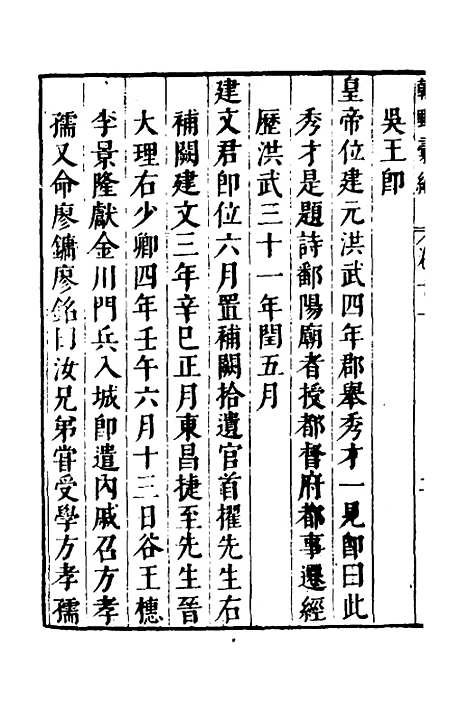 吳王即
皇帝位建元洪武四年郡舉秀才一見即曰此
秀才是題詩鄱陽廟者授都督府都事遷經
歷洪武三十一年閏五月
建文君即位六月置補闕拾遺官首擢先生右
補闕建文三年辛巳正月東昌捷至先生晉
大理右少卿四年壬午六月十三日谷王橞
李景隆獻金川門兵入城即遣內戚召方孝
孺又命廖鏞廖銘曰汝兄弟甞受學方孝孺